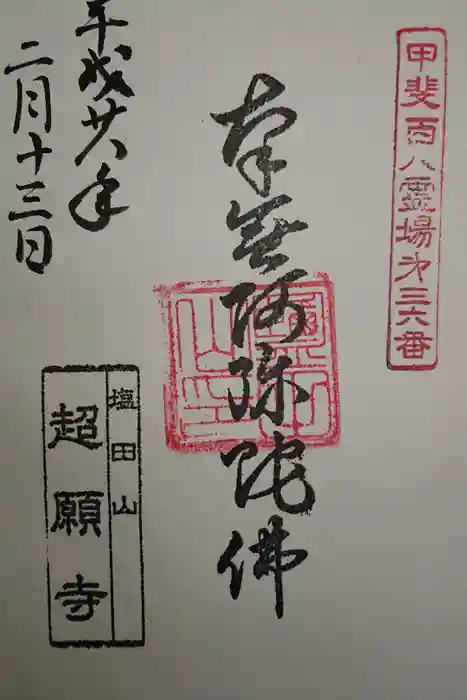 甲斐百八霊場第三六番
南無阿弥陀佛
平成廿八年
二月十三日
塩田山
超願寺